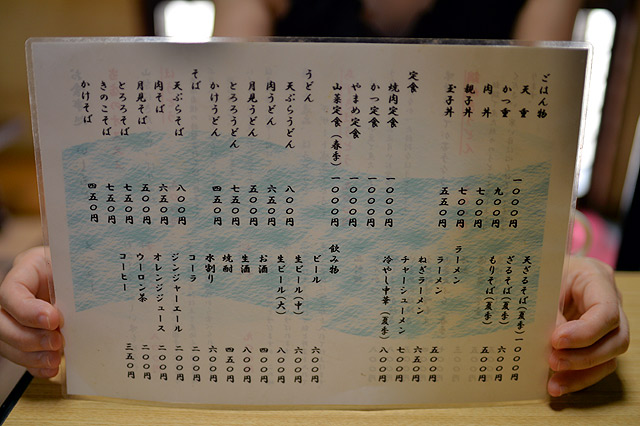 ごはん物
天重 一〇〇〇円
かつ重 九〇〇円
肉丼 七〇〇円
親子丼 七〇〇円
玉子丼 五五〇円
定食
焼肉定食 一〇〇〇円
かつ定食 一〇〇〇円
やまめ定食 一〇〇〇円
山菜定食(春季) 一〇〇〇円
うどん
天ぷらうどん 八〇〇円
肉うどん 六五〇円
月見うどん 五〇〇円
とろろうどん 七五〇円
かけうどん 四五〇円
そば
天ぷらそば 八〇〇円
肉そば 六五〇円
月見そば 五〇〇円
とろろそば 七五〇円
きのこそば 七五〇円
かけそば 四五〇円
天ざるそば(夏季) 一〇〇〇円
ざるそば(夏季) 六〇〇円
もりそば(夏季) 五〇〇円
ラーメン
ラーメン 五〇〇円
ねぎラーメン 六五〇円
チャーシューメン 七〇〇円
冷やし中華(夏季) 八〇〇円
飲み物
ビール 六〇〇円
生ビール(中) 六〇〇円
生ビール(大) 八〇〇円
お酒 四〇〇円
生酒 八〇〇円
焼酎 四五〇円
水割り 六〇〇円
コーラ 二〇〇円
ジンジャーエール 二〇〇円
オレンジジュース 二〇〇円
ウーロン茶 二〇〇円
コーヒー 三五〇円